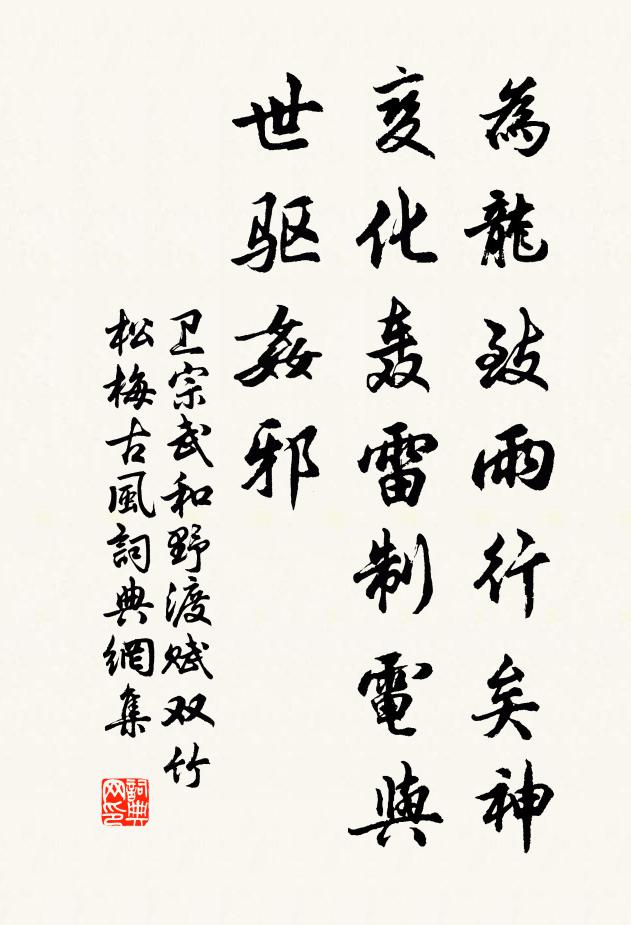 為龍致雨行矣神
変化轰雷制電與
世驱姦邪
卫宗武和野渡赋双竹
松梅古風詞典網集
詞典网印